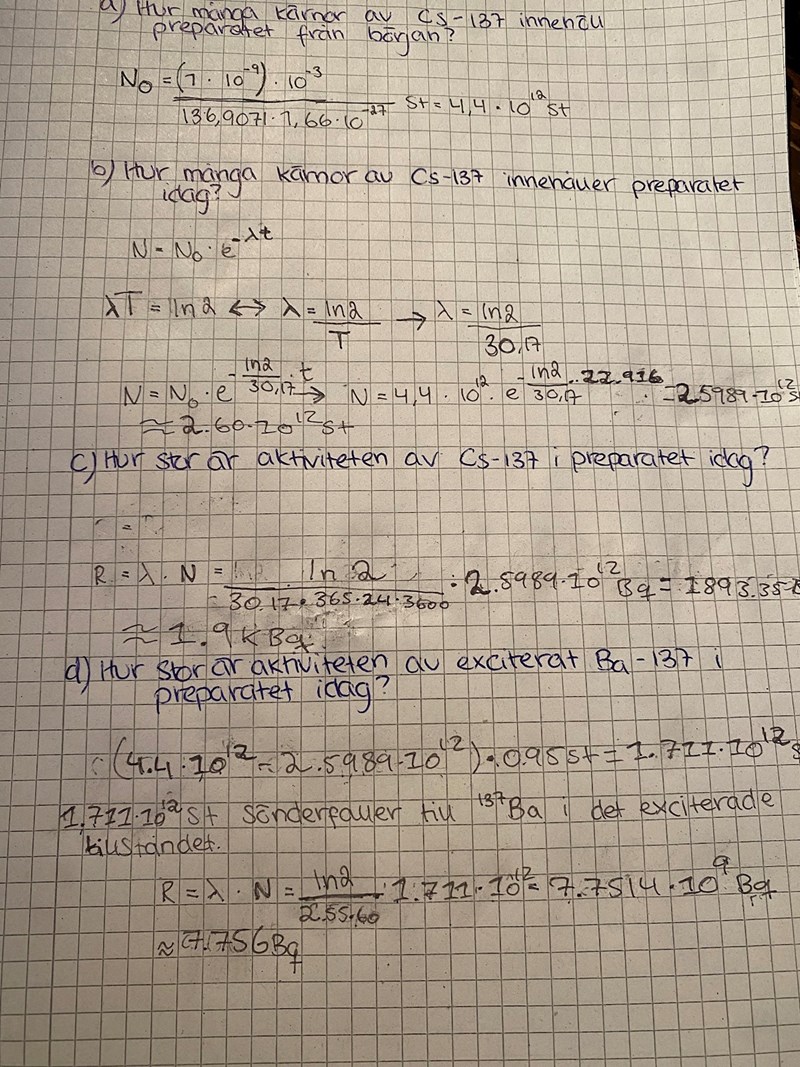 a) Hur många kärnor av Cs-137 innehöll
preparatet från början?
N₀ = (1 · 10⁻⁹) · 10⁻³ / 136,9071 · 1,66 · 10⁻²⁷ st = 4,4 · 10¹² st
b) Hur många kärnor av Cs-137 innehåller preparatet
idag?
N = N₀ · e^(-λt)
λT = ln2 ↔ λ = ln2 / T → λ = ln2 / 30,17
N = N₀ · e^(-ln2/30,17 · t) → N = 4,4 · 10¹² · e^(-ln2/30,17 · 22.916) = 2,5989 · 10¹² s
≈ 2.60 · 10¹² st
c) Hur stor är aktiviteten av Cs-137 i preparatet idag?
R = λ · N = ln 2 / 30.17 · 365 · 24 · 3600 · 2.5989 · 10¹² Bq = 1893.35
≈ 1.9 kBq
d) Hur stor är aktiviteten av exciterat Ba-137 i
preparatet idag?
(4.4 · 10¹² - 2.5989 · 10¹²) · 0.95 st = 1.711 · 10¹² s
1.711 · 10¹² st sönderfaller till ¹³⁷Ba i det exciterade
tillståndet.
R = λ · N = ln2 / 2.55 · 60 · 1.711 · 10¹² = 7.7514 · 10⁹ Bq
≈ 7.756 Bq